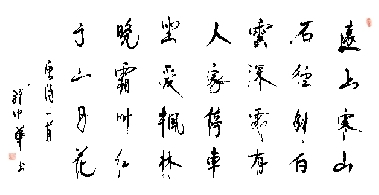 遠上寒山
石徑斜白
雲深處有
人家停車
坐愛楓林
晚霜叶红
于二月花
唐诗一首
中華书